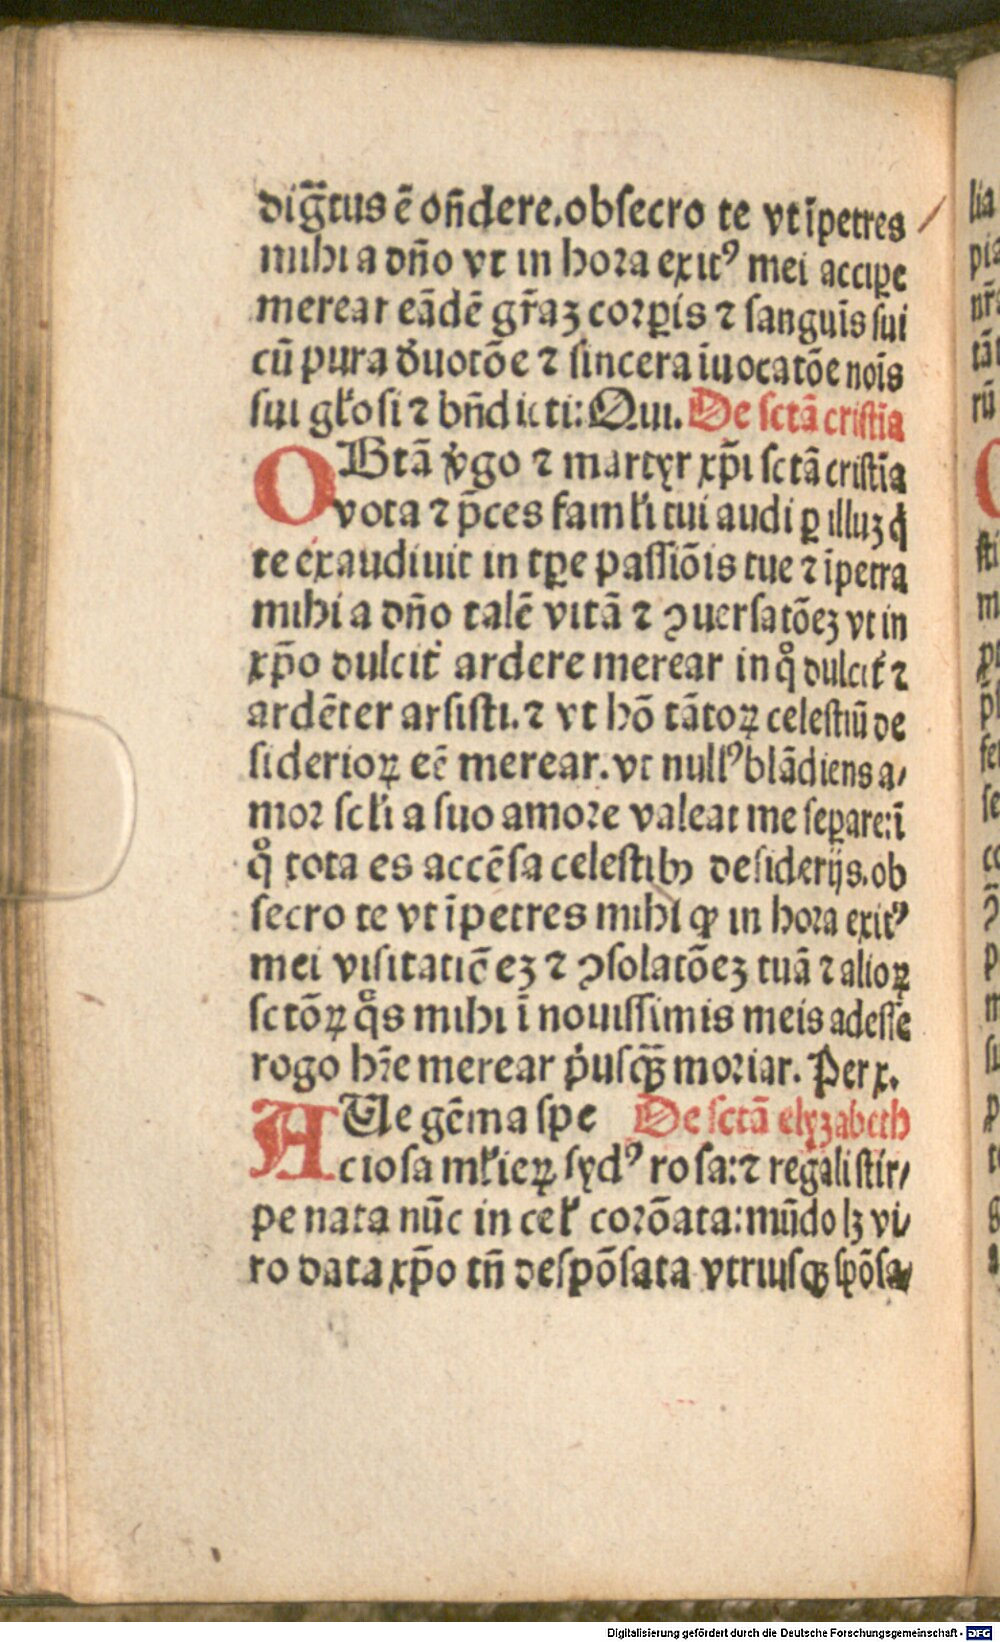 dig̃tus ē on̄dere.obſecro te vt īpetres
mihi a dn̄o vt in hora exitꝰ mei acciꝑe
merear eādē gr̄aꝫ corꝑis ⁊ ſanguīs ſui
cū pura d̓uotōe ⁊ ſincera īuocatōe noīs
ſui gl̓oſi ⁊ bn̄dicti: Qui. De ſctā criſtīa
O Btā v̓go ⁊ martyr xp̄i ſctā criſtīa
vota ⁊ p̄ces faml̓i tui audi ꝑ illuꝫ q̇
te exaudiuit in tꝑe paſſiōis tue ⁊ īpetra
mihi a dn̄o talē vitā ⁊ ꝯuerſatōeꝫ vt in
xp̄o dulcit̓ ardere merear in qͦ dulcit̓ ⁊
ardēter arſiſti. ⁊ vt hō tātoꝝ celeſtiū de
ſiderioꝝ eē merear. vt nullꝰ blādiens a⸗
mor ſcl̓i a ſuo amore valeat me ſeꝑare: ī
qͦ tota es accēſa celeſtibꝫ deſiderijs. ob
ſecro te vt īpetres mihi ꝙ in hora exitꝰ
mei viſitatiōeꝫ ⁊ ꝯſolatōeꝫ tuā ⁊ alioꝝ
ſctōꝝ qͦs mihi ī nouiſſimis meis adeſſe
rogo hr̄e merear p̓uſqꝫ̄ moriar. Per x.
A Ue gēma ſpe De ſctā elyzabeth
cioſa ml̓ieꝝ ſydꝰ roſa: ⁊ regali ſtir⸗
pe nata nūc in cel̓ corōata: mūdo lꝫ vi⸗
ro data xp̄o tn̄ deſpōſata vtriuſqꝫ ſpōſa⸗
Digitalisierung gefördert durch die Deutsche Forschungsgemeinschaft - DFG